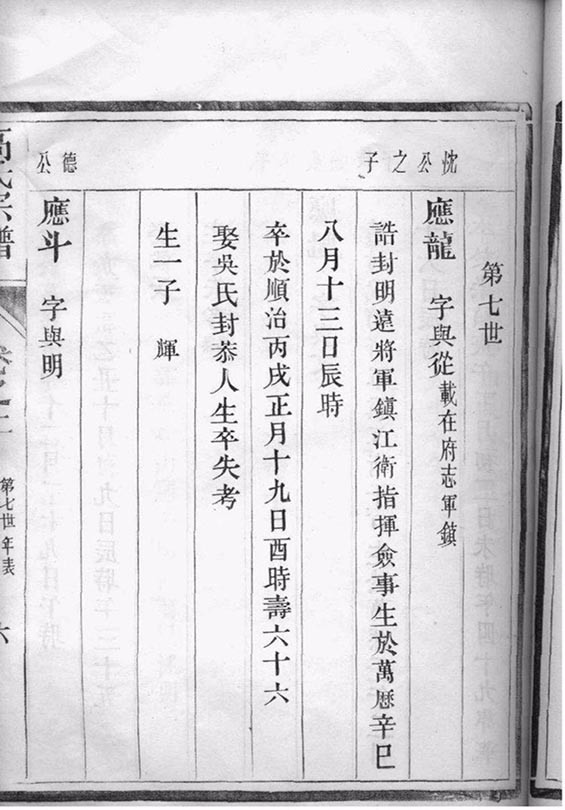 第七世
忱公之子
應龍　字與從載在府志軍鎮
誥封明遠將軍鎮江衛指揮僉事生於萬曆辛巳
八月十三日辰時
卒於順治丙戌正月十九日酉時壽六十六
娶吳氏封恭人生卒失考
生一子　輝
德公
應斗　字與明
高氏宗譜
第七世年表
六